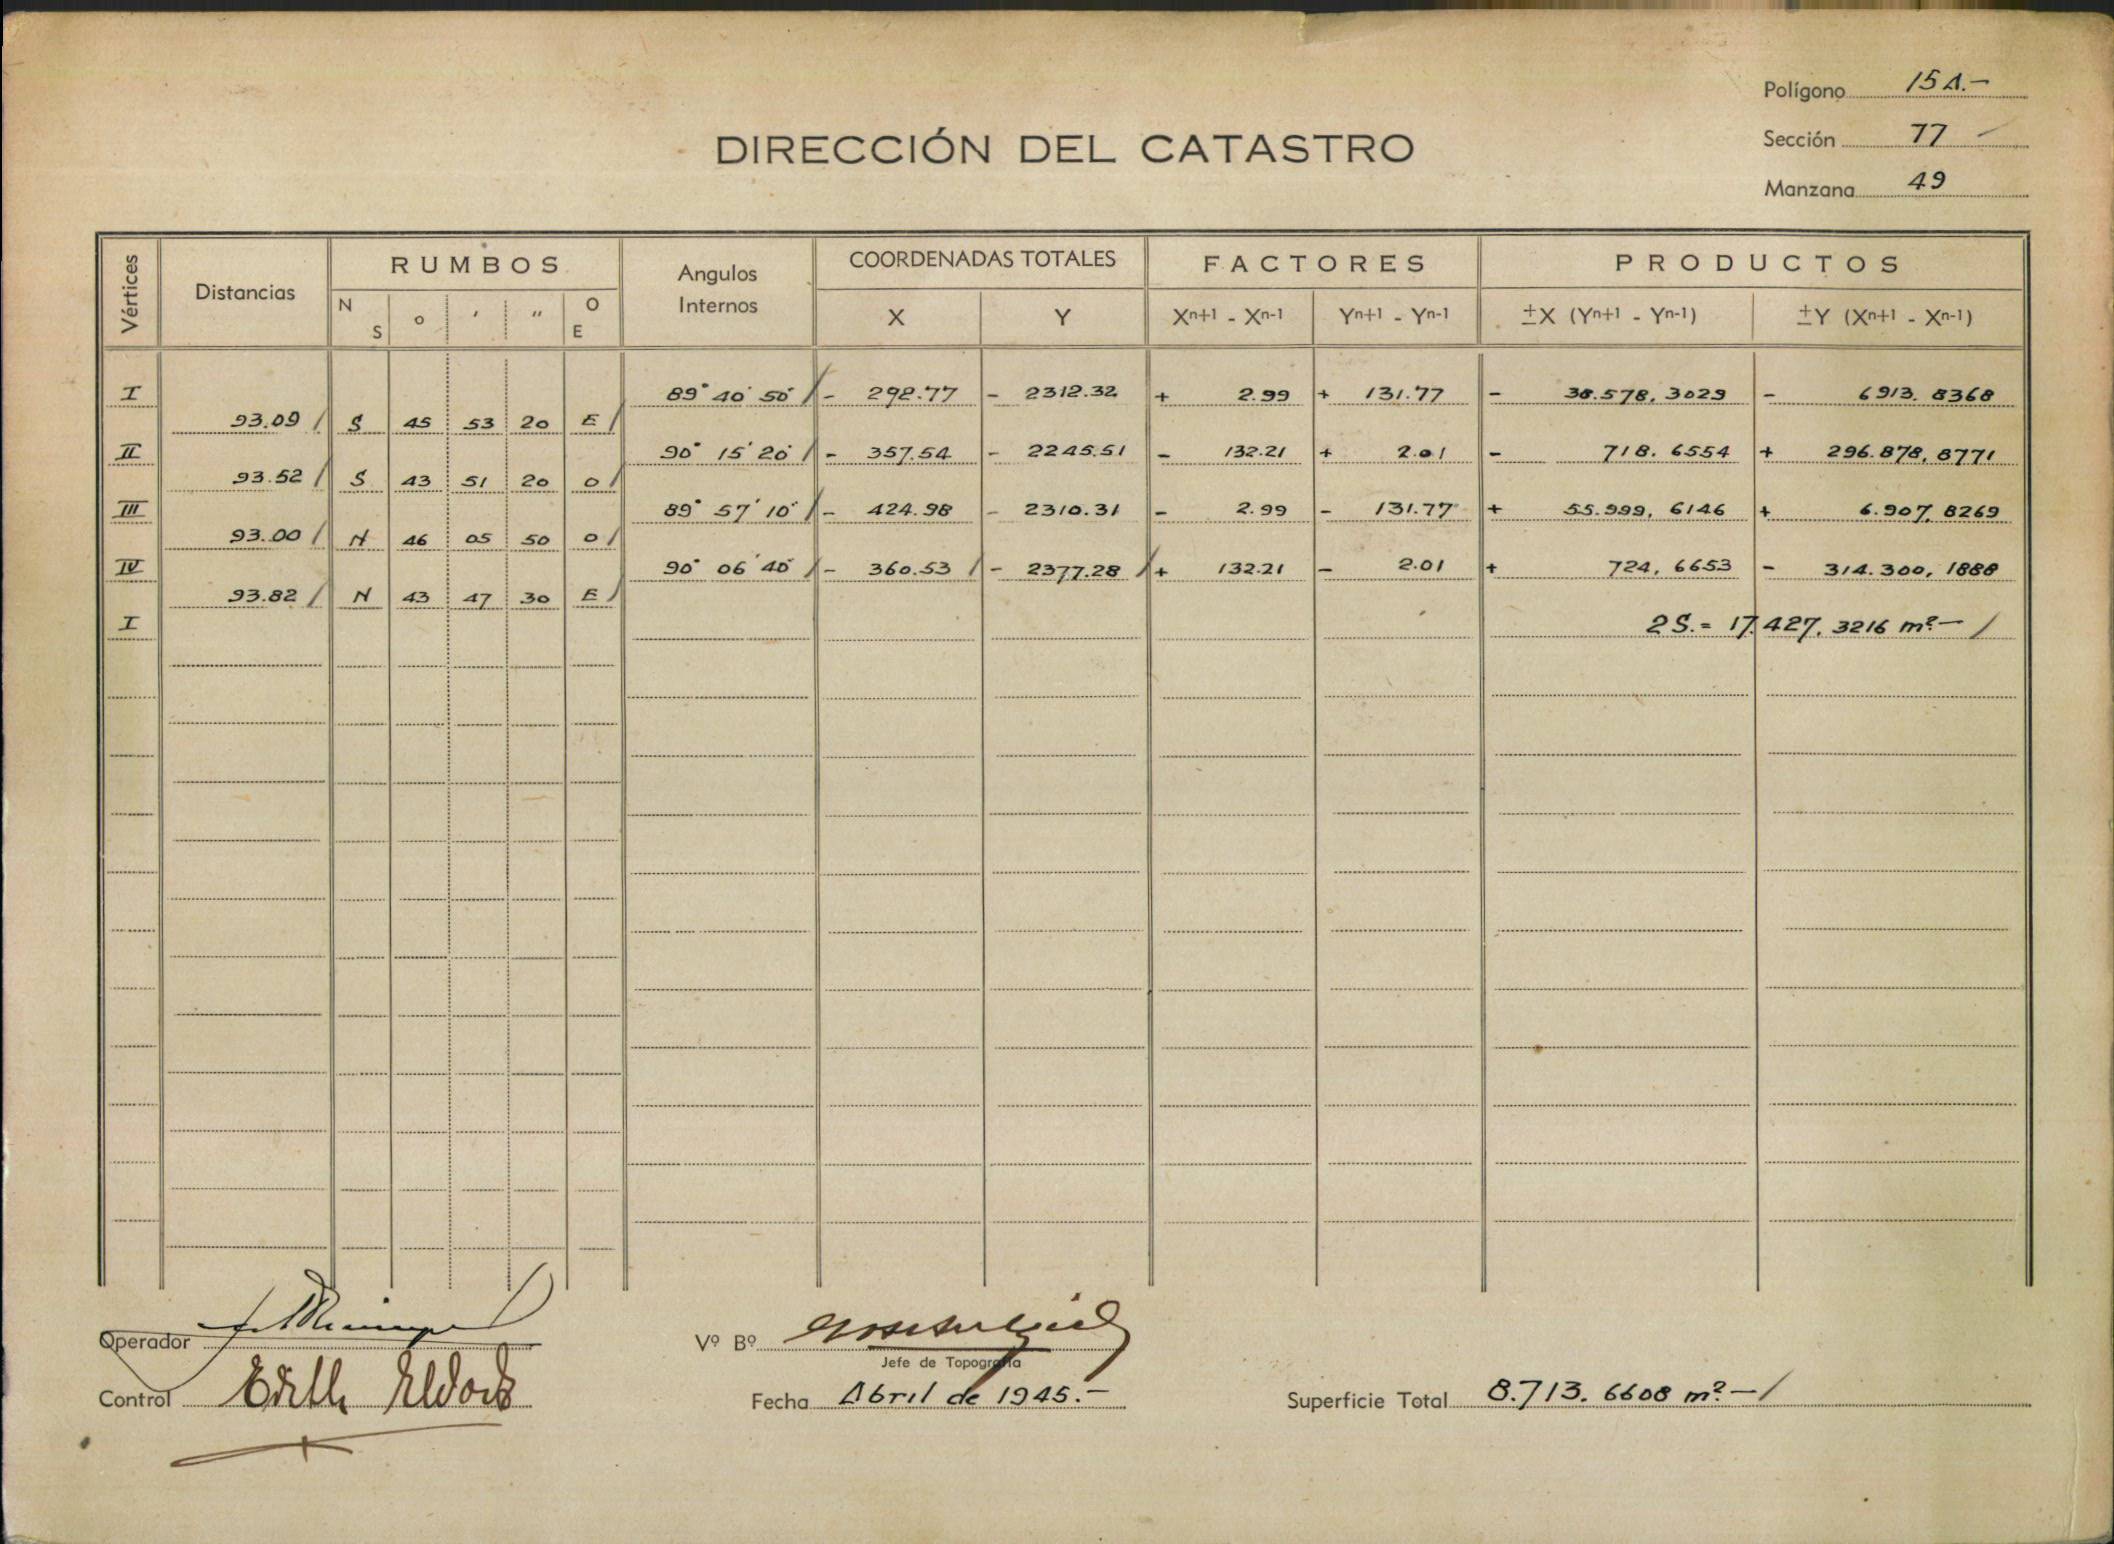 Polígono 15 A.-
DIRECCIÓN DEL CATASTRO
Sección 77
Manzana 49
Vértices Distancias RUMBOS Angulos Internos COORDENADAS TOTALES FACTORES PRODUCTOS
N S o ' " O E X Y Xn+1 - Xn-1 Yn+1 - Yn-1 ±X (Yn+1 - Yn-1) ±Y (Xn+1 - Xn-1)
I 89° 40' 50" / - 292.77 - 2312.32 + 2.99 + 131.77 - 38.578,3029 - 6913.8368
93.09 / S 45 53 20 E /
II 90° 15' 20" / - 357.54 - 2245.51 - 132.21 + 2.01 - 718.6554 + 296.878,8771
93.52 / S 43 51 20 O /
III 89° 57' 10" / - 424.98 - 2310.31 - 2.99 - 131.77 + 55.999,6146 + 6.907,8269
93.00 / N 46 05 50 O /
IV 90° 06' 40" / - 360.53 / - 2377.28 / + 132.21 - 2.01 + 724,6653 - 314.300,1888
93.82 / N 43 47 30 E /
I 2S.= 17.427.3216 m².- /
Operador
Vº Bº
Jefe de Topografía
Control
Fecha Abril de 1945.-
Superficie Total 8.713.6608 m².- /